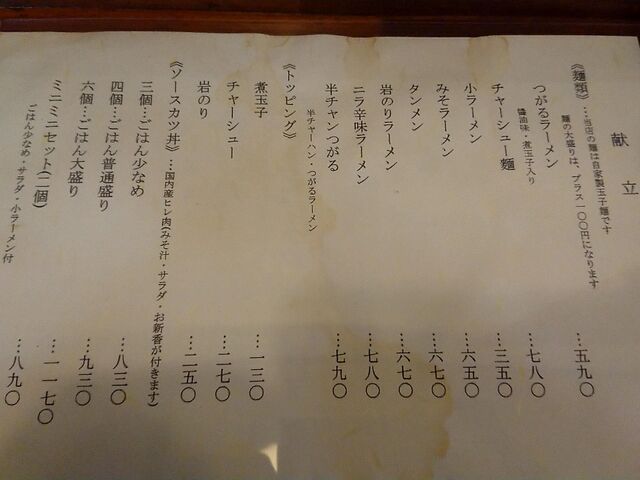 献立
《麺類》…当店の麺は自家製玉子麺です
麺の大盛りは、プラス一〇〇円になります
つがるラーメン …五九〇
醤油味・煮玉子入り
チャーシュー麺 …七八〇
小ラーメン …三五〇
みそラーメン …六五〇
タンメン …六七〇
岩のりラーメン …六七〇
ニラ辛味ラーメン …七八〇
半チャンつがる …七九〇
半チャーハン・つがるラーメン
《トッピング》
煮玉子 …一三〇
チャーシュー …二七〇
岩のり …二五〇
《ソースカツ丼》…国内産ヒレ肉(みそ汁・サラダ・お新香が付きます)
三個…ごはん少なめ …八三〇
四個…ごはん普通盛り …九三〇
六個…ごはん大盛り …一一七〇
ミニミニセット(二個) …八九〇
ごはん少なめ・サラダ・小ラーメン付